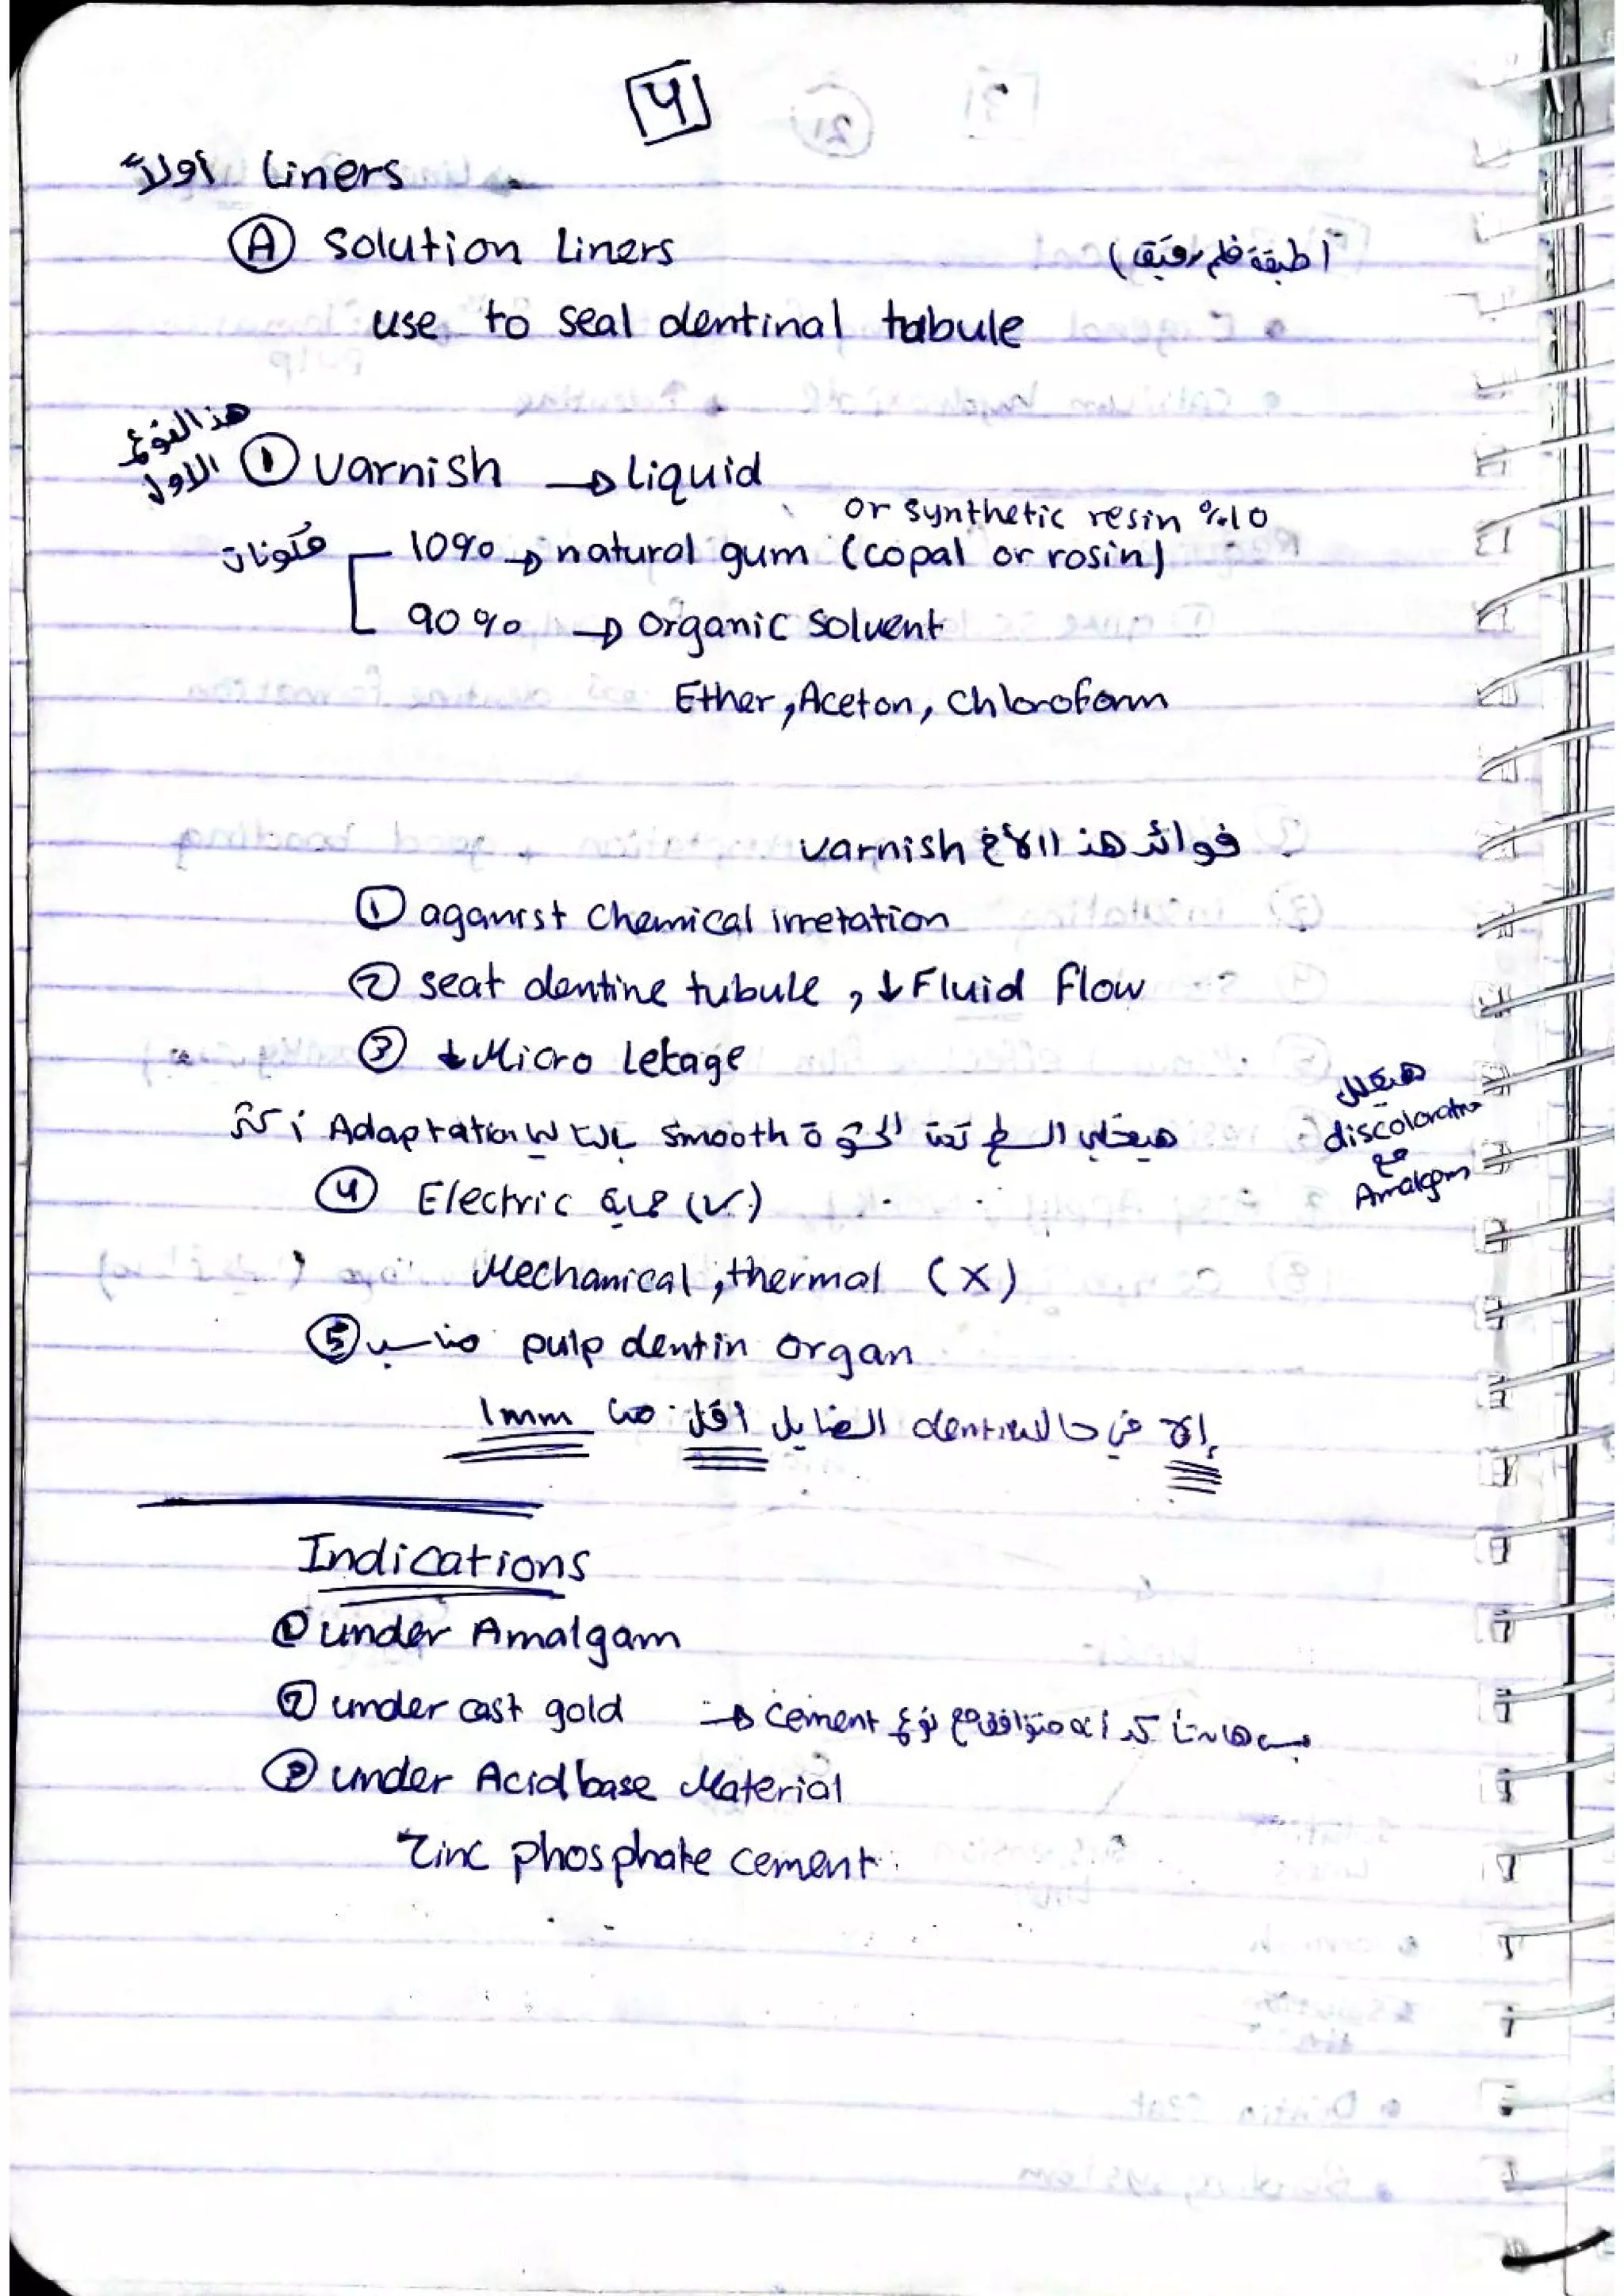 [4]
أولاً Liners
Ⓐ Solution Liners (طبقة فلم رقيق)
use to seal dentinal tubule
هذا النوع الاول ① Varnish → Liquid
or synthetic resin %10
مكونات 10% → natural gum (copal or rosin)
90% → Organic Solvent
Ether, Aceton, Chloroform
فوائد هذا الأخ varnish
① aganist chemical irretation
② seat dentine tubule, ↓ Fluid flow
③ ↓ Micro lekage
هيخلي السطح تحت الحشوة smooth بالتالي Adaptation أكثر
هيقلل discoloration مع Amalgam
④ Electric حماية (✓)
Mechanical, thermal (X)
⑤ مناسب pulp dentin organ
إلا في حال dentine الضايل أقل من 1mm
Indications
① under Amalgam
② under cast gold → cement نوع مع متوافق أنه أتأكد
③ under Acid base Material
Zinc phosphate cement